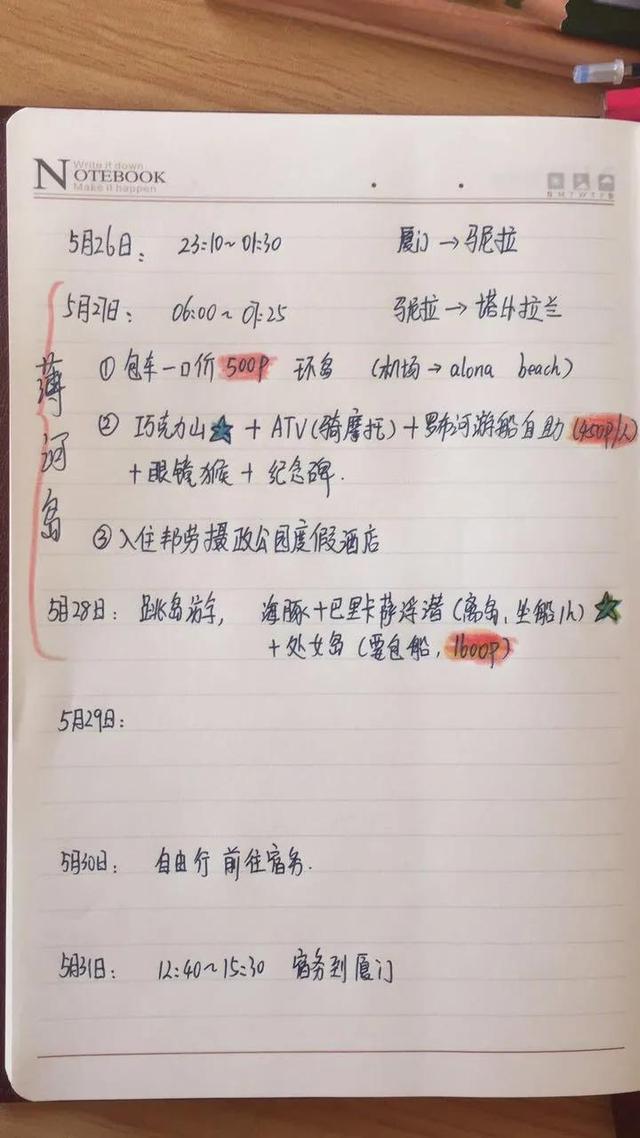 Write it down
NOTEBOOK
Make it happen
S M T W T F S
5月26日: 23:10~01:30 厦门→马尼拉
5月27日: 06:00~07:25 马尼拉→塔比拉兰
薄河岛
① 包车一口价 500P 环岛 (机场→alona beach)
② 巧克力山★ + ATV(骑摩托)+罗布河游船自助 (450P/人)
+眼镜猴 + 纪念碑.
③ 入住邦劳摄政公园度假酒店
5月28日: 跳岛游, 海豚+巴里卡萨浮潜 (离岛,坐船1h) ★
+处女岛 (要包船, 1600P)
5月29日:
5月30日: 自由行 前往宿务.
5月31日: 12:40~15:30 宿务到厦门